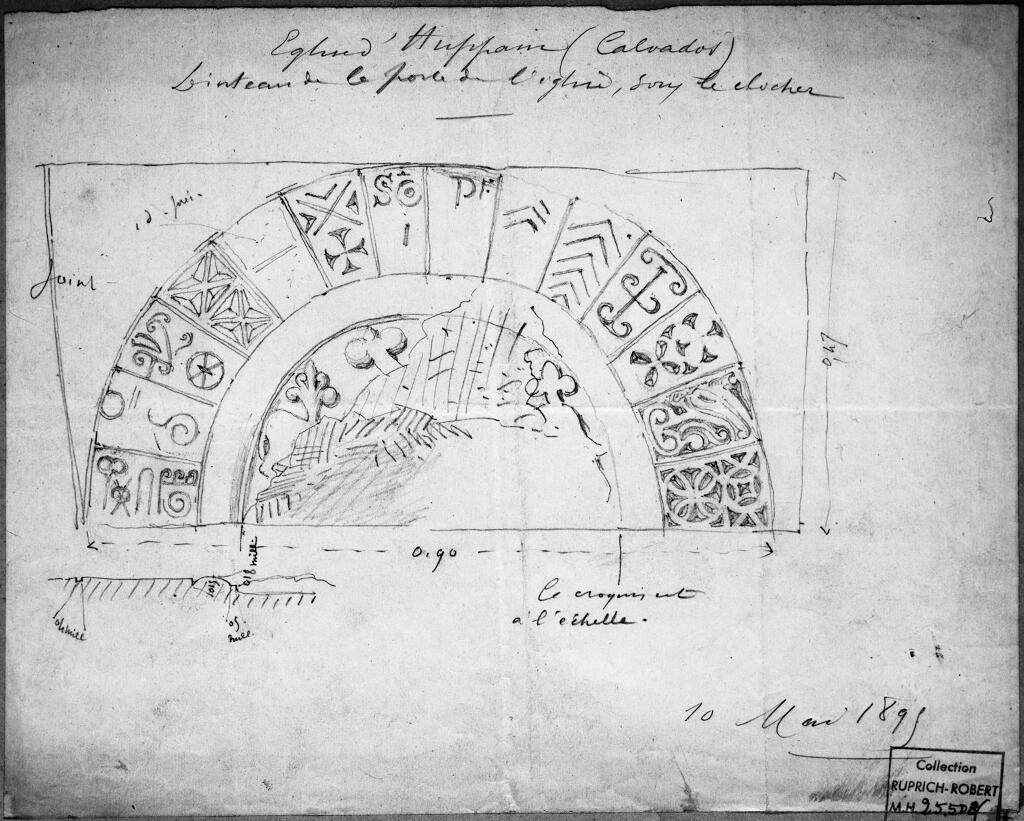 Eglise d'Huppain (Calvados)
Linteau de la porte de l'église, sous le clocher
Joint
Sē
PF
0.47
0.90
018 mill.
015
04 mill
05
mill.
le croquis est
à l'échelle.
10 Mai 1895
Collection
RUPRICH-ROBERT
M.H.